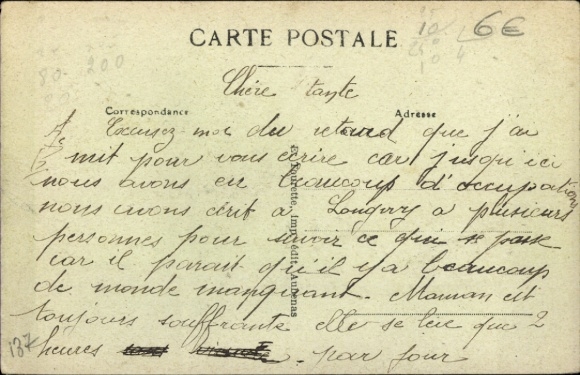 6€
10
CARTE POSTALE
80 - 200
Chère tante
Correspondance
Adresse
Excusez moi du retard que j'ai
mit pour vous écrire car jusqu'ici
nous avons eu beaucoup d'occupations
nous avons écrit à Longwy a plusieurs
personnes pour savoir ce qui se passe
car il parait qu'il y a beaucoup
de monde manquant. Maman est
toujours souffrante elle se leve que 2
heures par jour
137
Imp. édit. Aubenas